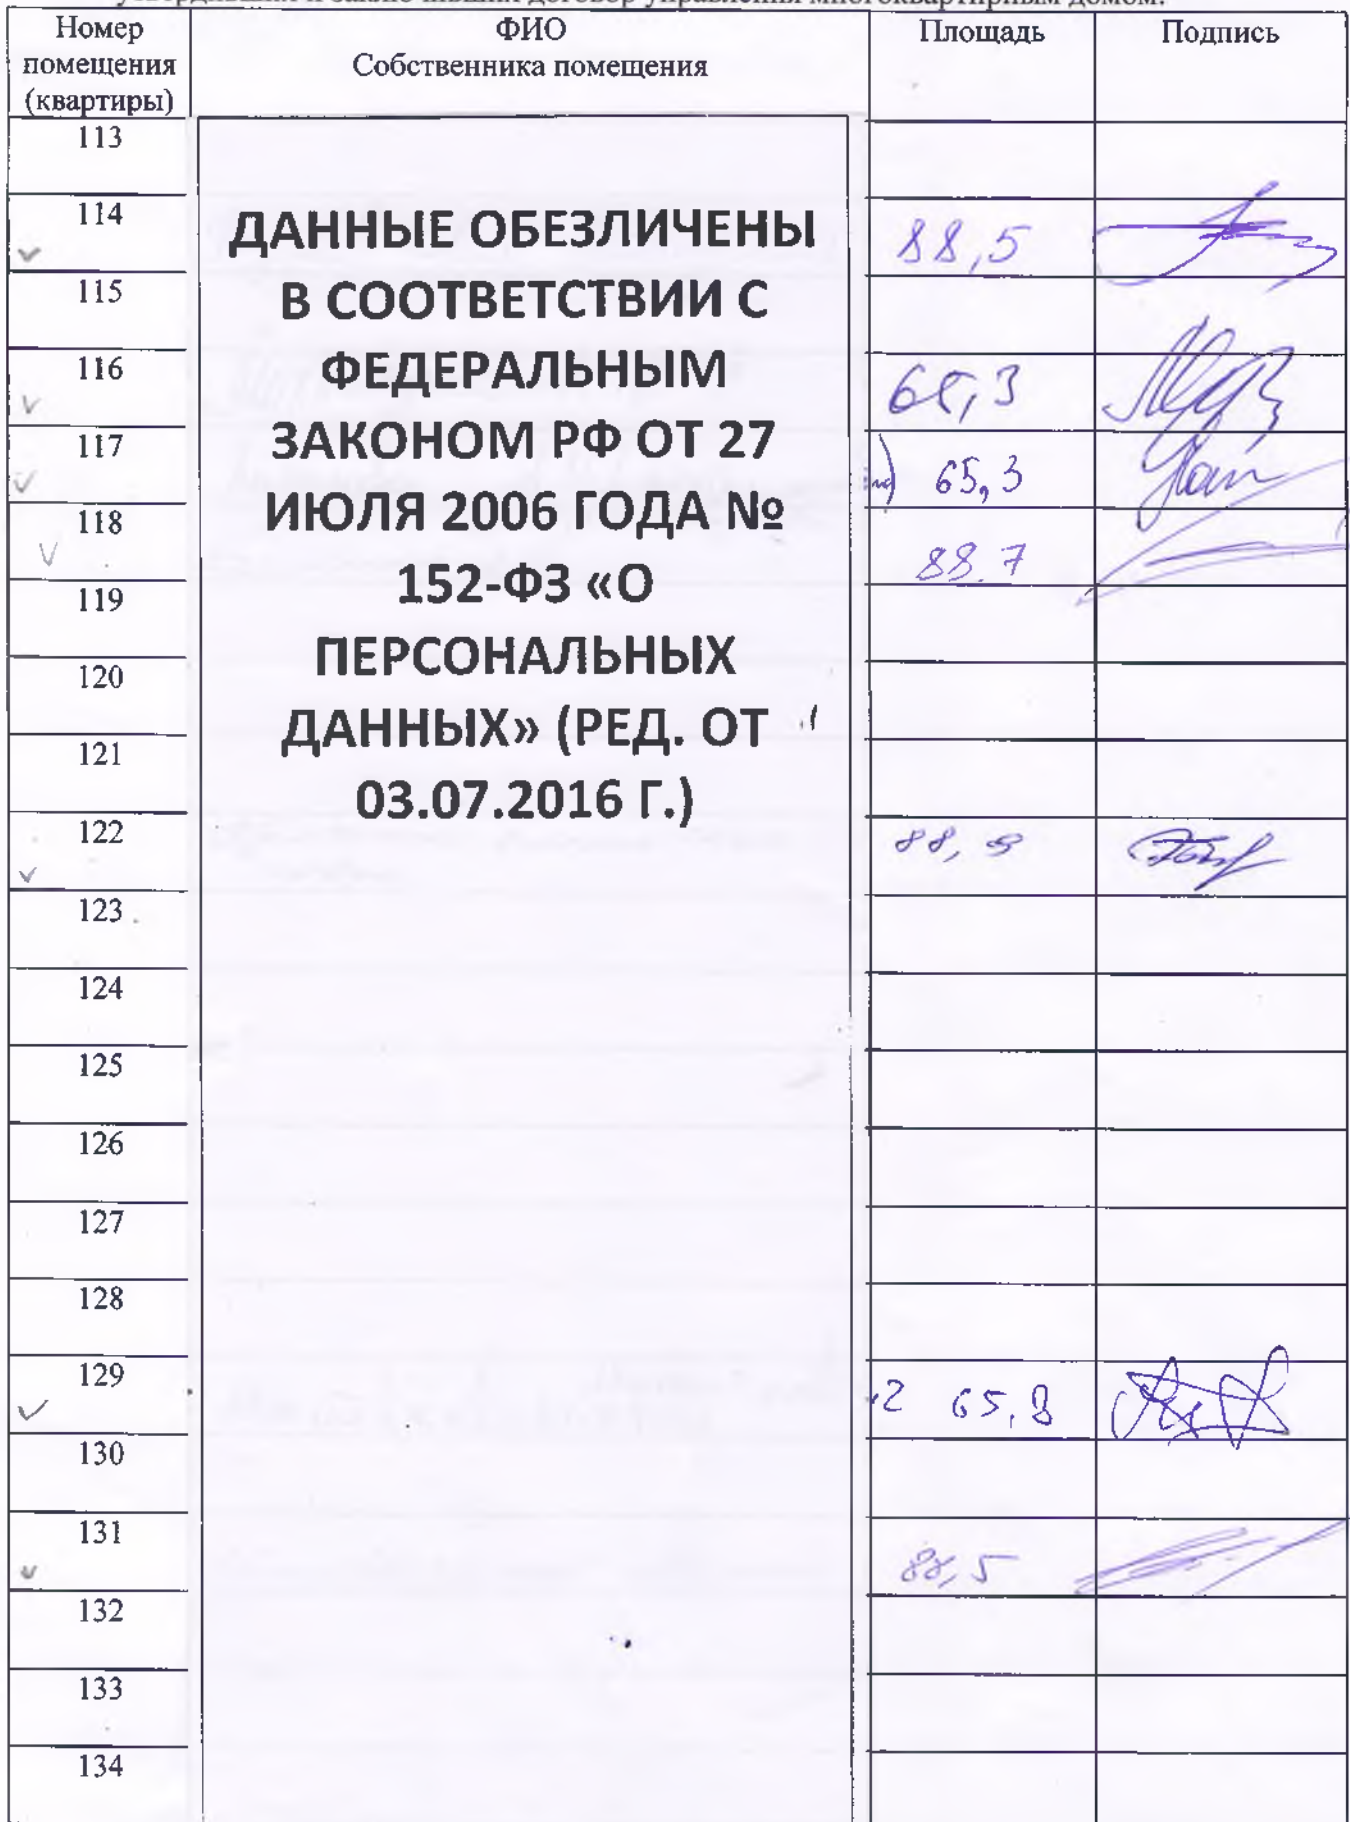 договор управления многоквартирным домом.
Номер помещения (квартиры)
ФИО
Собственника помещения
Площадь
Подпись
ДАННЫЕ ОБЕЗЛИЧЕНЫ
В СООТВЕТСТВИИ С
ФЕДЕРАЛЬНЫМ
ЗАКОНОМ РФ ОТ 27
ИЮЛЯ 2006 ГОДА №
152-ФЗ «О
ПЕРСОНАЛЬНЫХ
ДАННЫХ» (РЕД. ОТ
03.07.2016 Г.)
113
114 88,5
115
116 65,3
117 65,3
118 88.7
119
120
121
122
123
124
125
126
127
128
129 65,8
130
131 88,5
132
133
134